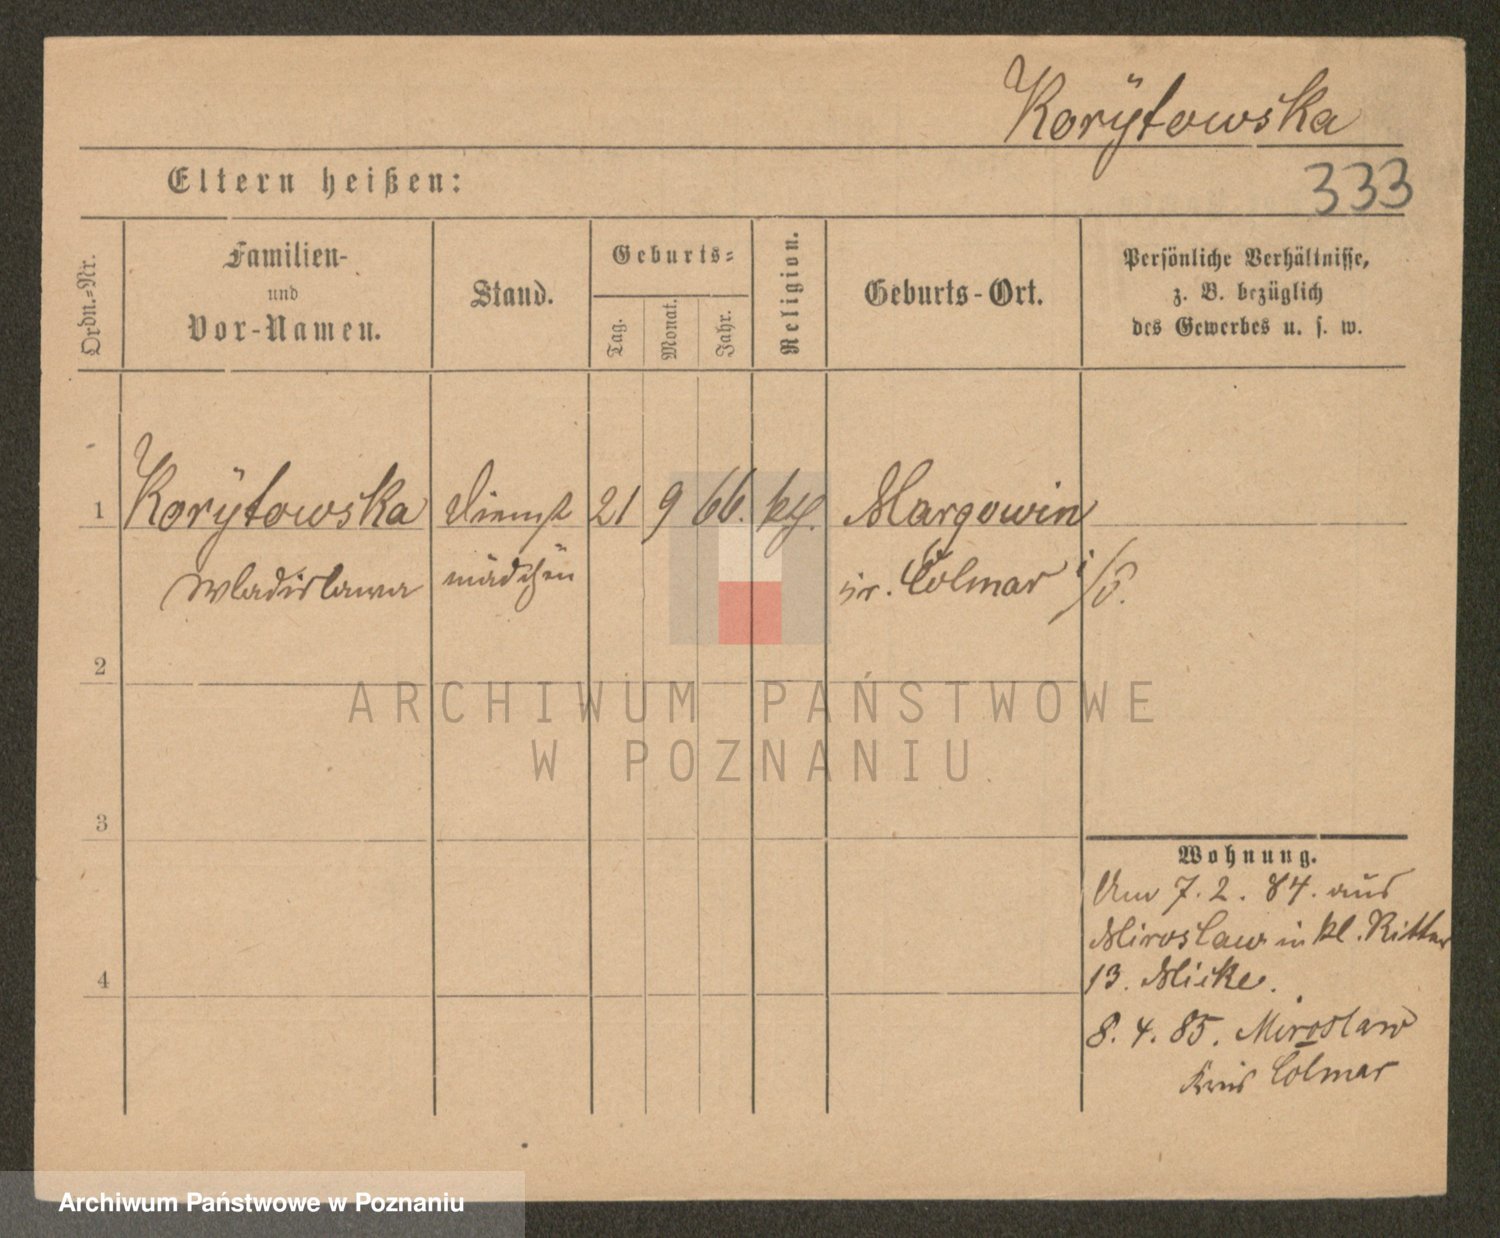 Korÿtowska
Eltern heißen:
333
Ordn.-Nr.
Familien-
und
Vor-Namen.
Stand.
Geburts-
Tag.
Monat.
Jahr.
Religion.
Geburts-Ort.
Persönliche Verhältnisse,
z. B. bezüglich
des Gewerbes u. s. w.
1 Korÿtowska Dienst 21 9 66. Margowin
Wladislawa mädchen Colmar i/P.
2
ARCHIWUM PAŃSTWOWE
W POZNANIU
3
Wohnung.
Am 7. 2. 84. aus
Miroslaw in kl. Ritter
13. Micke.
4
8. 4. 85. Miroslaw
Kreis Colmar
Archiwum Państwowe w Poznaniu